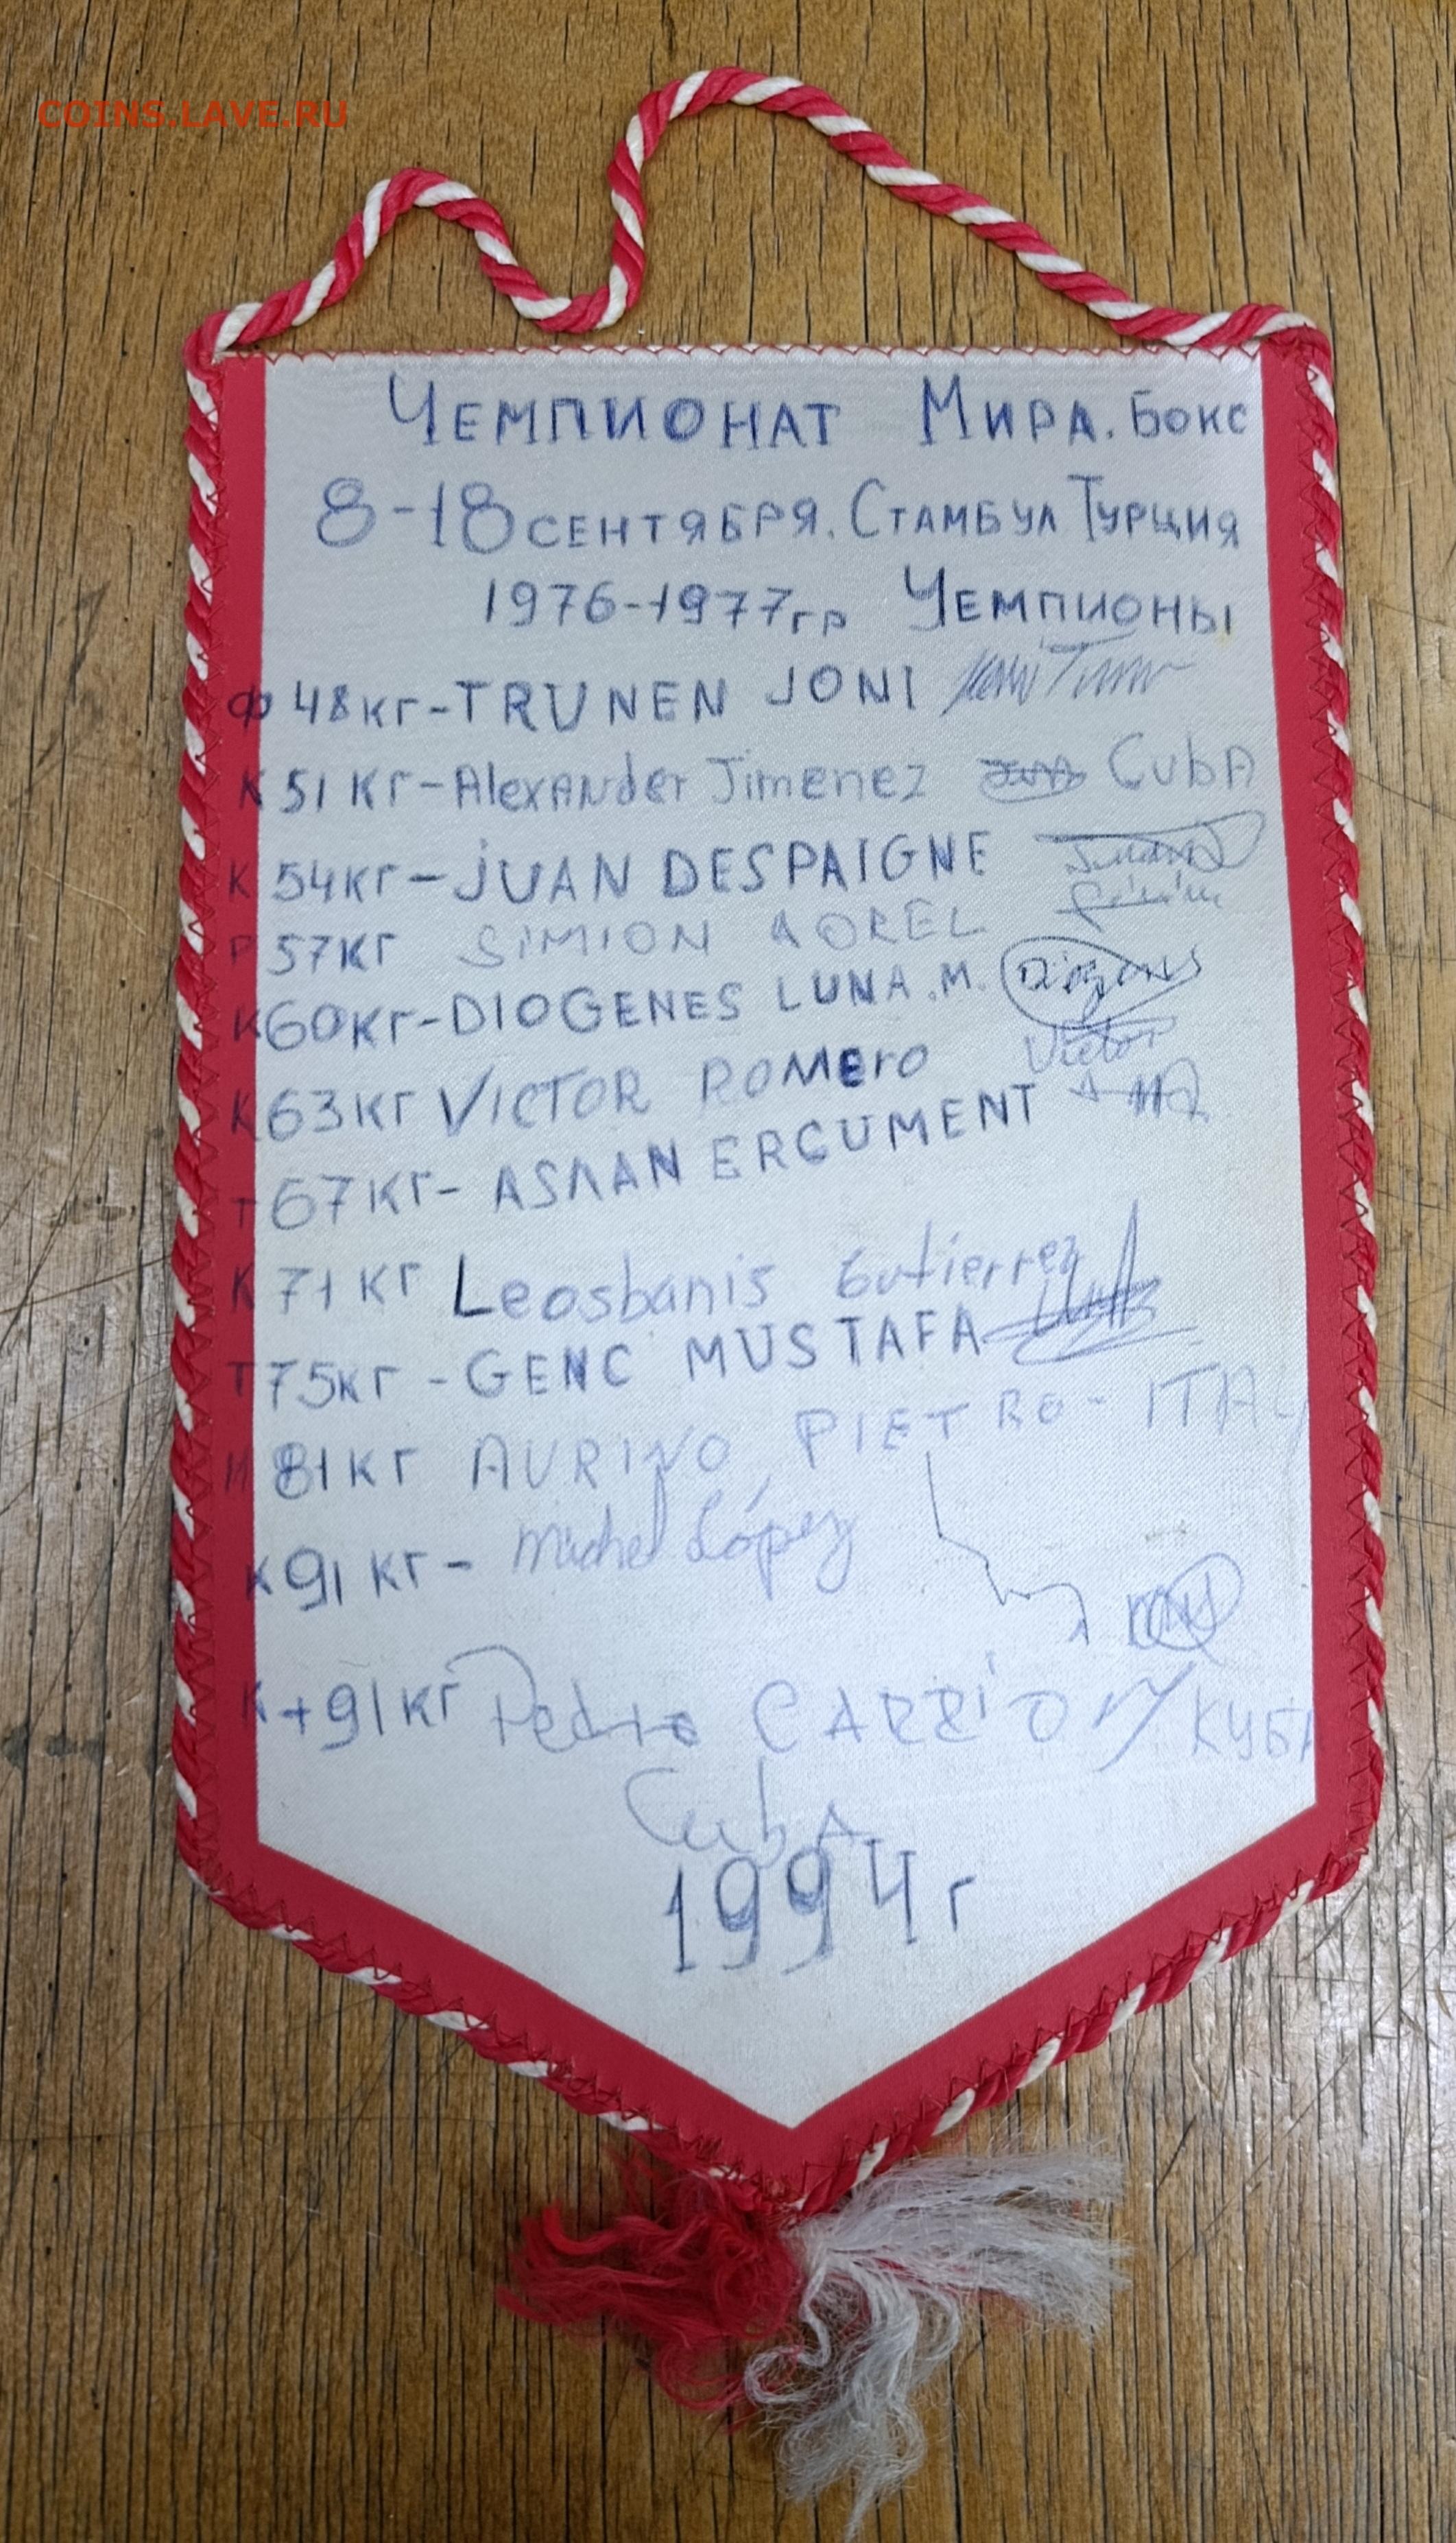 COINS.LAVE.RU
ЧЕМПИОНАТ МИРА. БОКС
8-18 СЕНТЯБРЯ. СТАМБУЛ ТУРЦИЯ
1976-1977гр ЧЕМПИОНЫ
Ф 48 кг-TRUNEN JONI
К 51 кг-Alexander Jimenez CubA
К 54 кг-JUAN DESPAIGNE
Р 57 кг SIMION AOREL
К 60 кг-DIOGENES LUNA.M.
К 63 кг VICTOR ROMEro Victor
Т 67 кг- ASΛAN ERCUMENT
К 71 кг Leosbanis Gutierrez
Т 75 кг - GENC MUSTAFA
И 81 кг AURINO PIETRO- ITAY
К 91 кг - Michel López
К +91 кг Pedro CARRION КУБА
CubA
1994 г